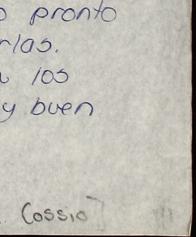 pronto
rlas.
los
y buen
Cossio